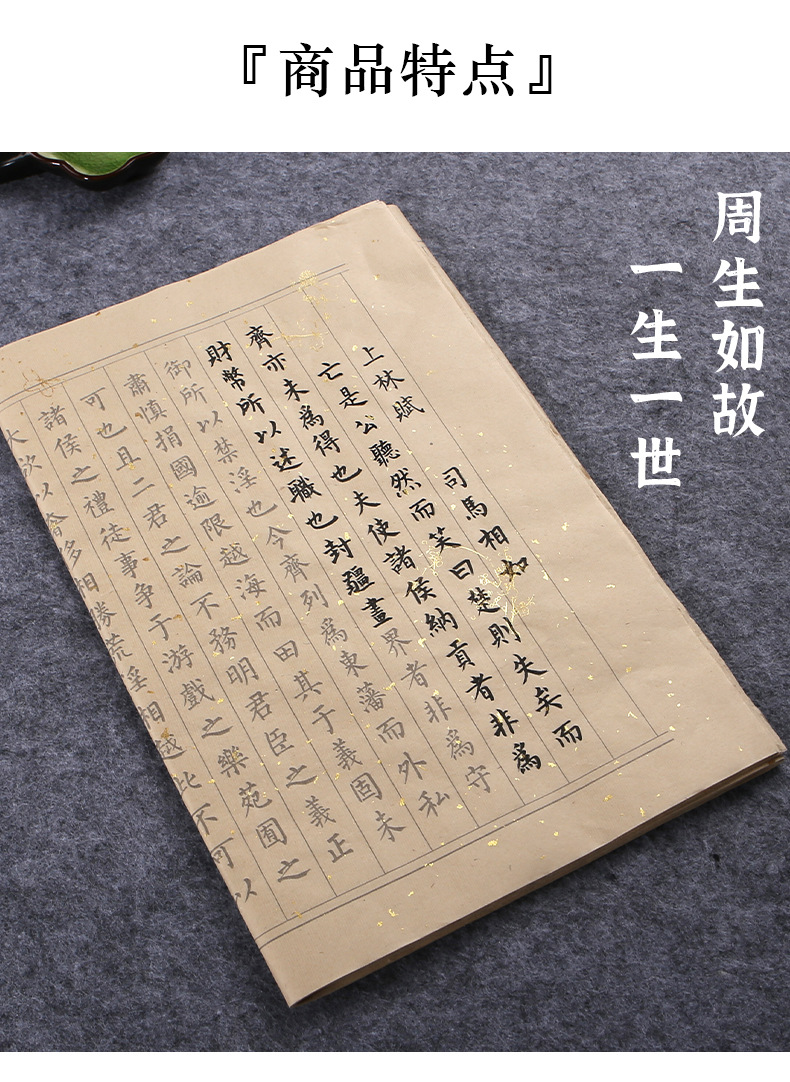 『商品特点』
周生如故
一生一世
上林賦 司馬相如
亡是公聽然而笑曰楚則失矣而
齊亦未爲得也夫使諸侯納貢者非爲
財幣所以述職也封疆畫界者非爲守
御所以禁淫也今齊列爲東藩而外私
肅慎捐國逾限越海而田其于義固未
可也且二君之論不務明君臣之義正
諸侯之禮徒事争于游戲之樂苑囿之
大欲以奢侈相勝荒淫相越此不可以